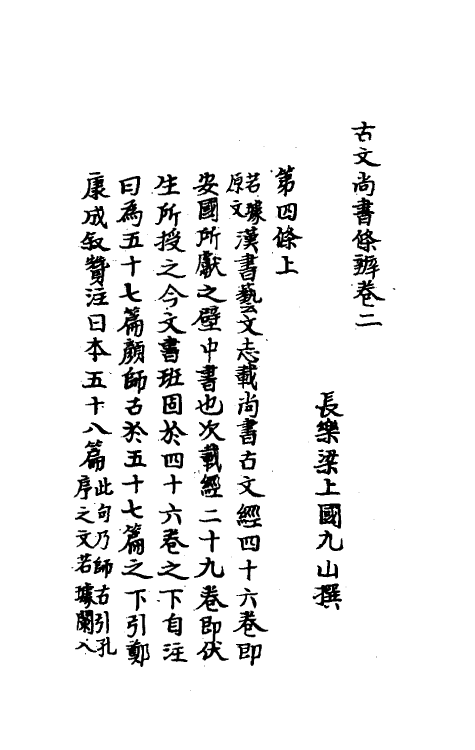 古文尚書條辨卷二
長樂梁上國九山撰
第四條上
若據原文漢書藝文志載尚書古文經四十六卷即
安國所獻之壁中書也次載經二十九卷即伏
生所授之今文書班固於四十六卷之下自注
曰為五十七篇顏師古於五十七篇之下引鄭
康成叙贊注曰本五十八篇此句乃師古引孔序之文若璩闌入